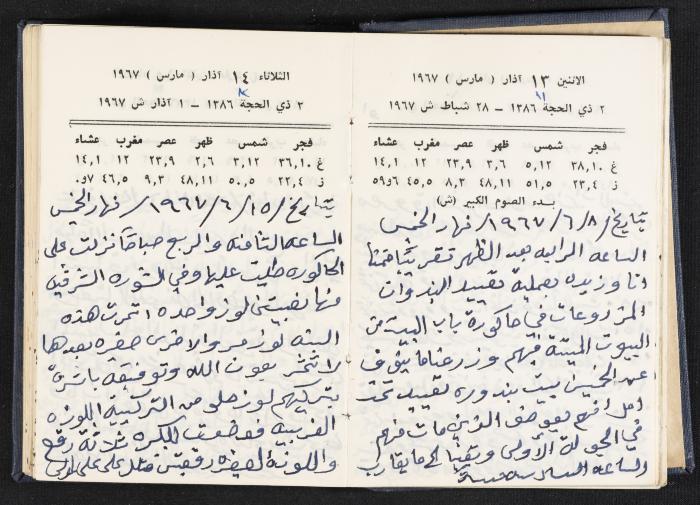 الاثنين ١٣ آذار ( مارس ) ١٩٦٧
٢ ذي الحجة ١٣٨٦ – ٢٨ شباط ش ١٩٦٧
فجر شمس ظهر عصر مغرب عشاء
غ ٣٨,١٠ ٥,١٢ ٣,٦ ٢٣,٩ ١٢ ١٤,١
ز ٢٣,٤ ٥١,٥ ٤٨,١١ ٨,٣ ٤٥,٥ ٥٩و٦
بدء الصوم الكبير (ش)
بتاريخ ١٩٦٧/٦/٨/ نهار الخميس
الساعه الرابعه بعد الظهر تقريبًا قمنا
انا وزيده بعملية تقييد البندوات
المزروعات في حاكورة باب البيت من
البيوت الميتة فيهم وزرعنا ما ينوف
عن الخمسين بيت بندوره تقييد تحت
امل انهم يعوضو الذين مات فيهم
في الجولة الأولى وبقينا الى ما يقارب
الساعه السادسه مساءً
الثلاثاء ١٤ آذار ( مارس ) ١٩٦٧
٣ ذي الحجة ١٣٨٦ – ١ آذار ش ١٩٦٧
فجر شمس ظهر عصر مغرب عشاء
غ ٣٦,١٠ ٣,١٢ ٢,٦ ٢٣,٩ ١٢ ١٤,١
ز ٢٢,٤ ٥٠,٥ ٤٨,١١ ٩,٣ ٤٦,٥ ٧و٠
بتاريخ /١٩٦٧/٦/١٥/ نهار الخميس
الساعه الثامنه والربع صباحًا نزلت على
الحاكوره طليت عليها وفي الشوره الشرقيه
منها نصبتين لوز واحده اثمرت هذه
السنه لوز مر والاخرى صغيره بعدها
لا تثمر بعون الله وتوفيقه باشرت
بتركيبهم لوز حلو من التركيبة اللوزه
الغربيه فوضعت للكبره ثلاثة رقع
واللوزة الصغيره رقعتين على اربع